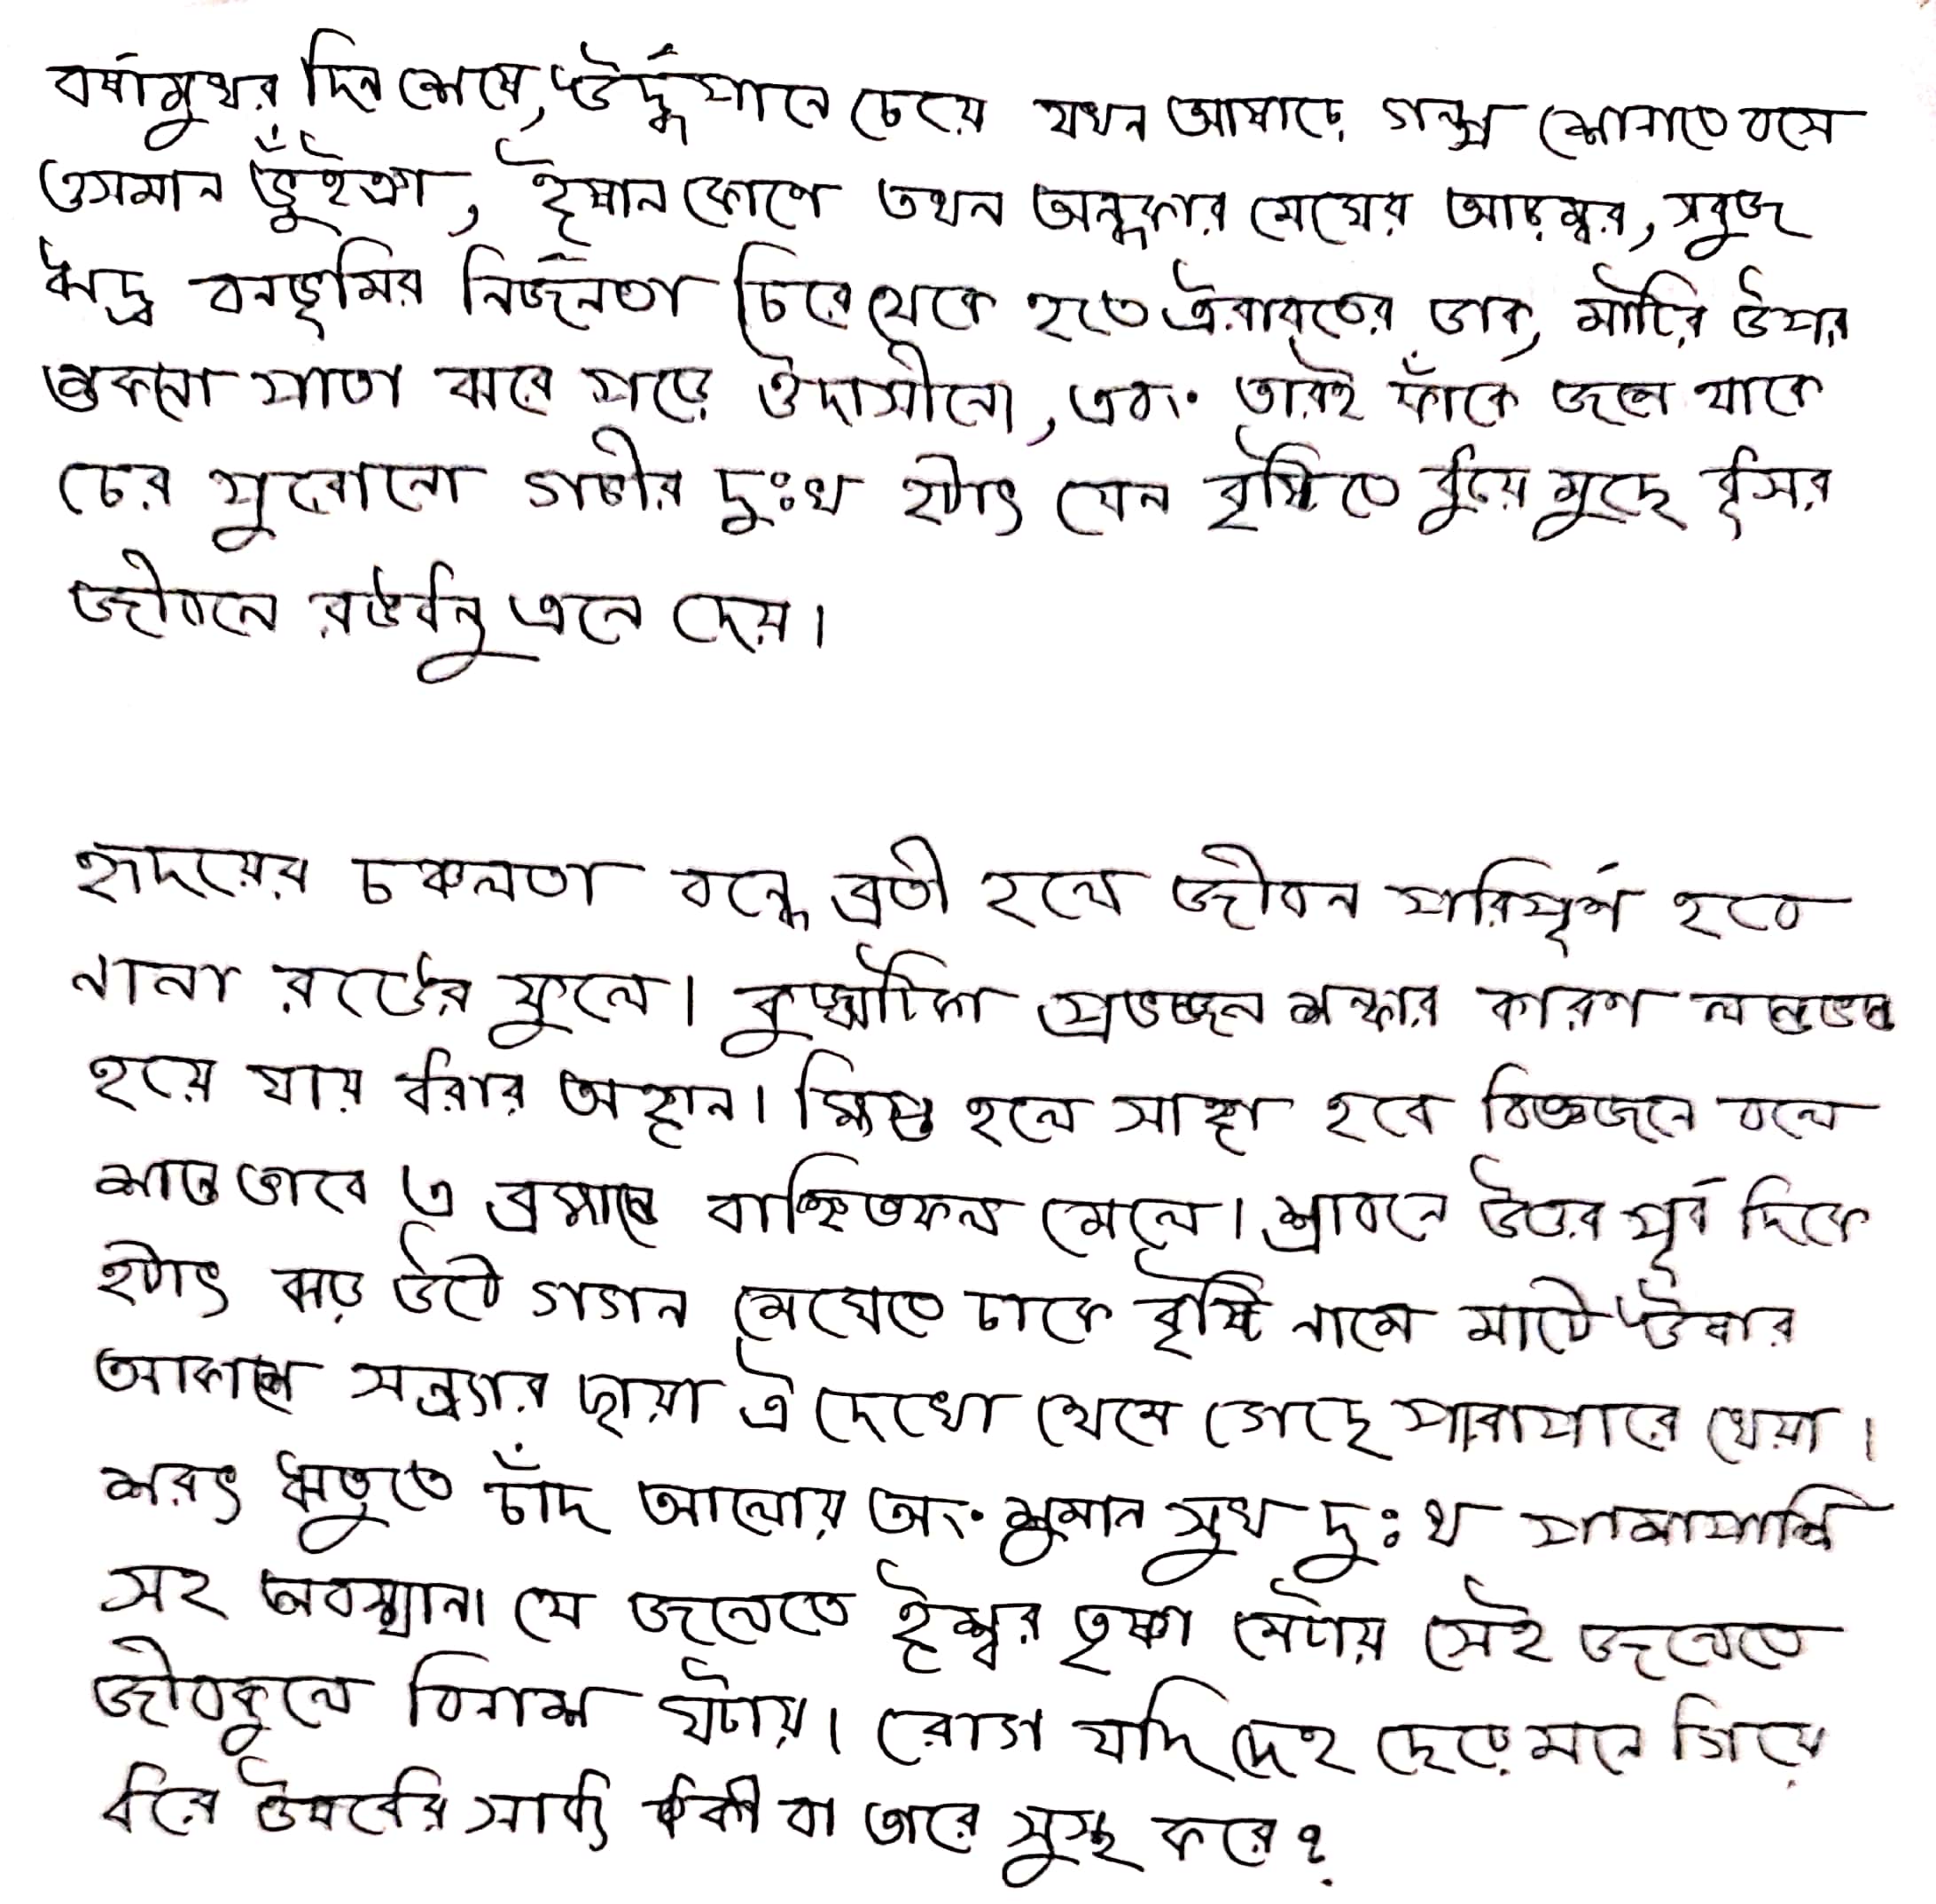 বর্ষামুখর দিন শেষে, ঊর্দ্ধপানে চেয়ে যখন আষাঢ়ে গল্প শোনাতে বসে
ওসমান ভুঁইঞা, ঈষান কোণে তখন অন্ধকার মেঘের আড়ম্বর, সবুজে
ঋদ্ধ বনভূমির নির্জনতা চিরে থেকে হতে ঐরাবতের ডাক, মাটির উপর
শুকনো পাতা ঝরে পড়ে ঔদাসীন্যে, এবং তারই ফাঁকে জমে থাকে
ঢের পুরোনো গভীর দুঃখ হঠাৎ যেন বৃষ্টিতে ধুয়ে মুছে ধূসর
জীবনে রঙধনু এনে দেয়।
হৃদয়ের চঞ্চলতা বন্ধে ব্রতী হলে জীবন পরিপূর্ণ হবে
নানা রঙের ফুলে। কুজ্ঝটিকা প্রভঞ্জন শঙ্কার কারণ লণ্ডভণ্ড
হয়ে যায় ধরার অঙ্গন। ক্ষিপ্ত হলে সাঙ্গ হবে বিজ্ঞজনে বলে
শান্ত ভাবে এ ব্রহ্মাণ্ডে বাঞ্ছিতফল মেলে। শ্রাবনে উত্তর পূর্ব দিকে
হঠাৎ ঝড় উঠে গগন মেঘেতে ঢাকে বৃষ্টি নামে মাঠে ঊষার
আকাশে সন্ধ্যার ছায়া ঐ দেখো থেমে গেছে পারাপারে খেয়া।
শরৎ ঋতুতে চাঁদ আলোয় অংশুমান সুখ দুঃখ পাশাপাশি
সহ অবস্থান। যে জলেতে ঈশ্বর তৃষ্ণা মেটায় সেই জলেতে
জীবকুলে বিনাশ ঘটায়। রোগ যদি দেহ ছেড়ে মনে গিয়ে
ধরে ঔষধের সাধ্য কী বা তারে সুস্থ করে?